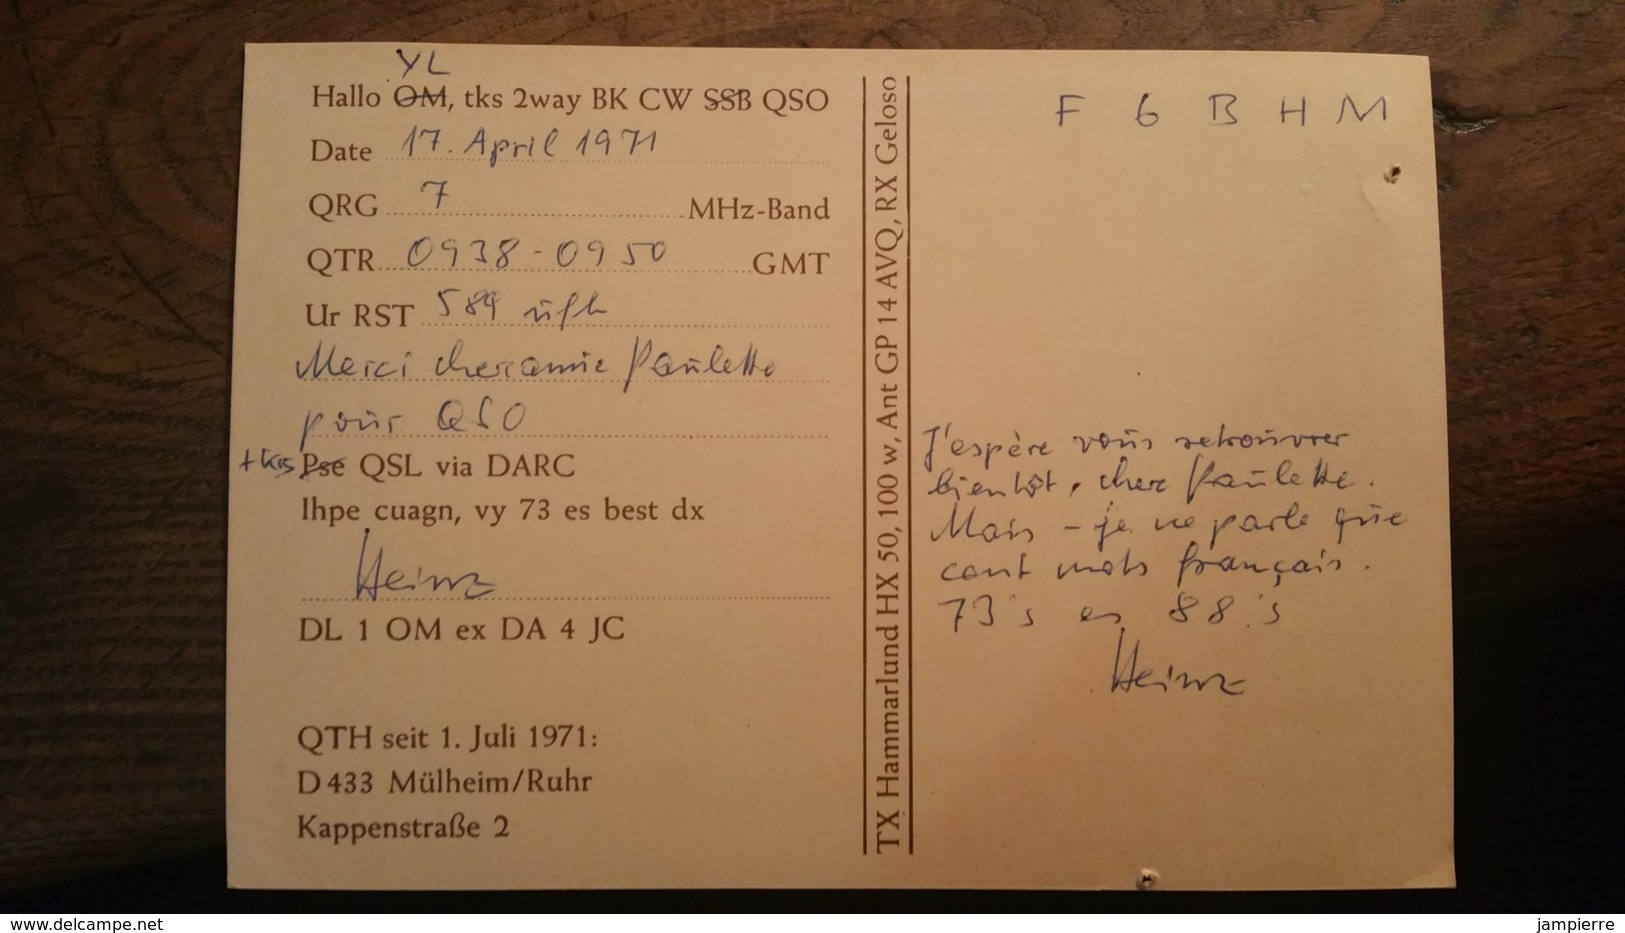 YL
Hallo OM, tks 2way BK CW SSB QSO
Date 17. April 1971
QRG 7 MHz-Band
QTR 0938-0950 GMT
Ur RST 589 ufb
Merci cher amie Paulette
pour QSO
tks Pse QSL via DARC
Ihpe cuagn, vy 73 es best dx
Heinz
DL 1 OM ex DA 4 JC
QTH seit 1. Juli 1971:
D 433 Mülheim/Ruhr
Kappenstraße 2
TX Hammarlund HX 50, 100 w, Ant GP 14 AVQ, RX Geloso
F 6 B H M
J'espère vous retrouver
bientôt, cher Paulette.
Mais - je ne parle que
cent mots français.
73's es 88's
Heinz
delcampe.net
jampierre